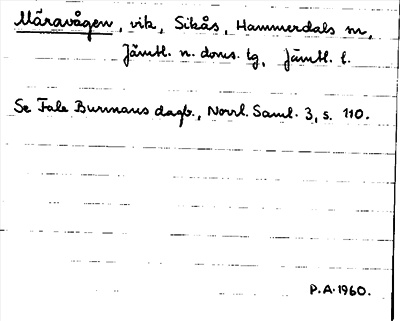 Märavågen, vik, Sikås, Hammerdals sn,
Jämtl. n. doms. tg, Jämtl. l.
Se Fale Burmans dagb., Norrl. Saml. 3, s. 110.
P.A. 1960.